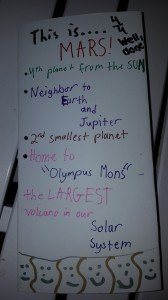 This is....
4/4
MARS!
Well done
• 4th planet from the SUN
• Neighbor to
Earth
and
Jupiter
• 2nd smallest planet
• Home to
"Olympus Mons" -
the LARGEST
volcano in our
Solar
System